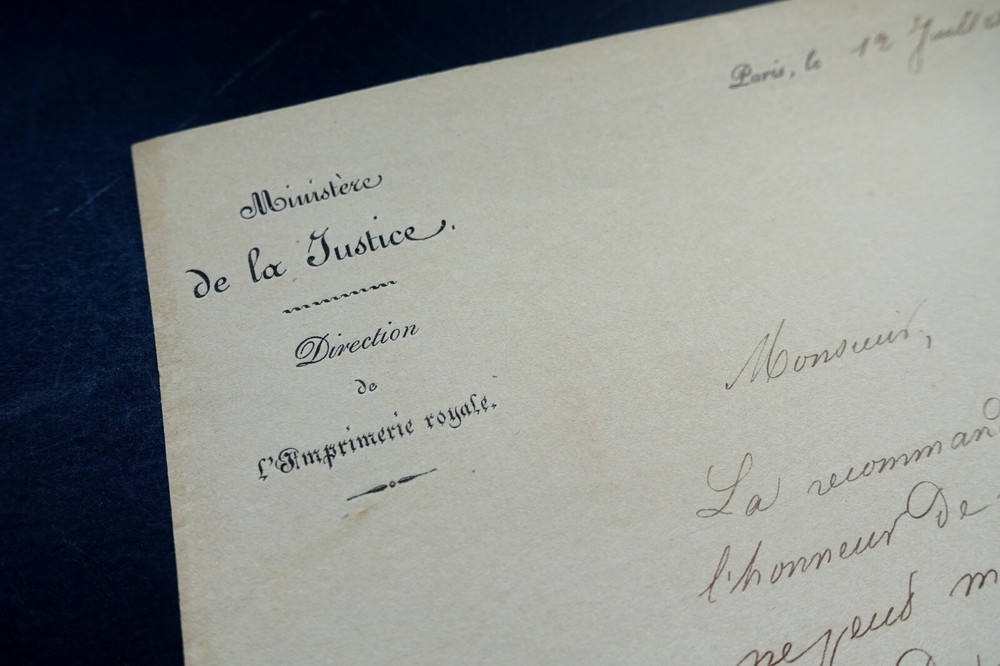 Paris, le 12 Juillet
Ministère
de la Justice.
Direction
de
l'Imprimerie royale.
Monsieur,
La recomman
l'honneur De
ne peut m